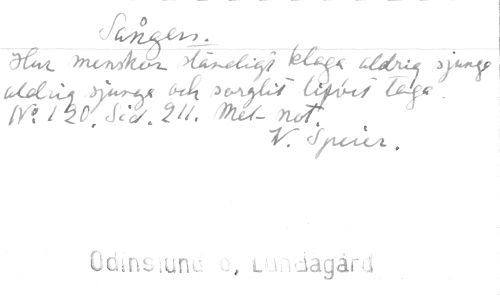 Sången.
Hur menskor ständigt klaga aldrig sjunga
aldrig sjunga och sorglöst lifvet taga.
No. 120. Sid. 211. Mel- not.
V. Speier.
Odinslund o, Lundagård